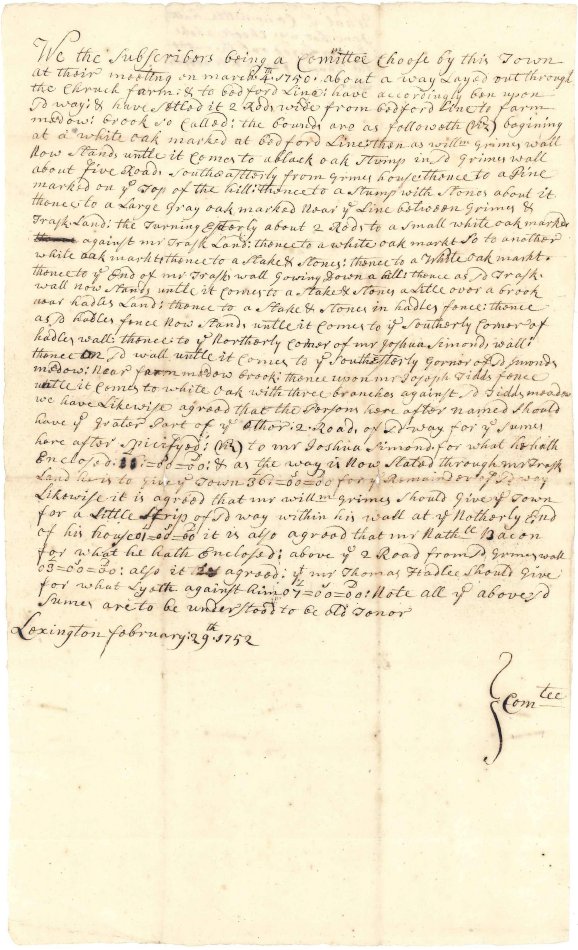 We the Subscribors being a Comittee Choose by this Town
at their meeting on march 4th 1750 about a way Layed out through
the Chruch farm: & to bedford Line: have accordingly ben upon
sd way: & have setled it 2 Rods wide from bedford Line to farm
medow: brook so Called: the bounds are as followeth (viz) begining
at a white oak marked at bedford Line then as willm Grimes wall
Now Stands untle it Comes to a black oak Stump in sd Grimes wall
about five Roads Southeasterly from Grimes house thence to a Pine
marked on ye Top of the hill: thence to a Stump with Stones about it
thence to a Large Gray oak marked Near ye Line between Grimes &
Trask Land: the Turning Esterly about 2 Rods to a small white oak marked
against mr Trask Land: thence to a white oak markt So to another
white oak markt thence to a Stake & Stones: thence to a White oak markt
thence to ye End of mr Trasks wall Gowing Down a hill: thence as sd Trask
wall now Stands untle it Comes to a Stake & Stones a Litle over a brook
near hadles Land: thence to a Stake & Stones in hadles fence: thence
as sd hadles fence Now Stands untle it Comes to ye Southerly Corner of
hadles wall: thence to ye Northerly Corner of mr Joshua Simonds wall:
thence on sd wall untle it Comes to ye Southesterly Gorner of sd Simonds
medow: Near farm medow brook: thence upon mr Joseph Tidds fence
untle it Comes to white oak with three branches against sd Tidds meadow
we have Likewise agreed that the Persons here after named Should
have ye grater Part of ye other: 2 Roads of sd way for ye Sumes
here after Spicifyed: (viz) to mr Joshua Simond for what he hath
Enclosed: =00=00: & as the way is Now Stated through mr Trask
Land he is to Give ye Town 36:=00=00 for ye Remainder of sd way
Likewise it is agreed that mr willm Grimes Should Give ye Town
for a Little Strip of sd way within his wall at ye Notherly End
of his house 01=00=00 it is also agreed that mr Nathll Bacon
for what he hath Enclosed: above ye 2 Road from sd Grimes wall
03=00=00: also it is agreed: yt mr Thomas Hadlee Should Give
for what Lyeth against him 07=00=00: Note all ye above sd
Sumes are to be understood to be old Tenor
Lexington february: 29th 1752
Comtee